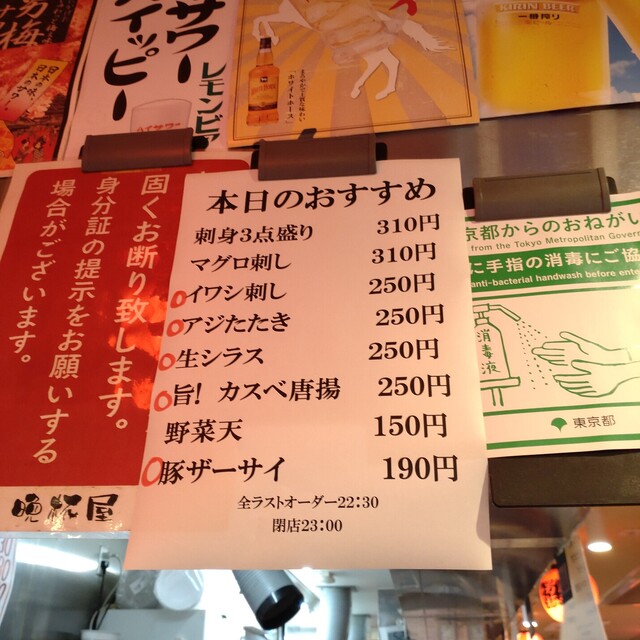 サワー
イッピー
レモンビア
まろやかで上質な味わい
「ホワイトホース」
KIRIN BEER
一番搾り
固くお断り致します。
身分証の提示をお願いする
場合がございます。
晩杯屋
本日のおすすめ
刺身3点盛り 310円
マグロ刺し 310円
イワシ刺し 250円
アジたたき 250円
生シラス 250円
旨! カスベ唐揚 250円
野菜天 150円
豚ザーサイ 190円
全ラストオーダー22:30
閉店23:00
京都からのおねがい
from the Tokyo Metropolitan Govern
に手指の消毒にご協
anti-bacterial handwash before ente
消毒液
東京都